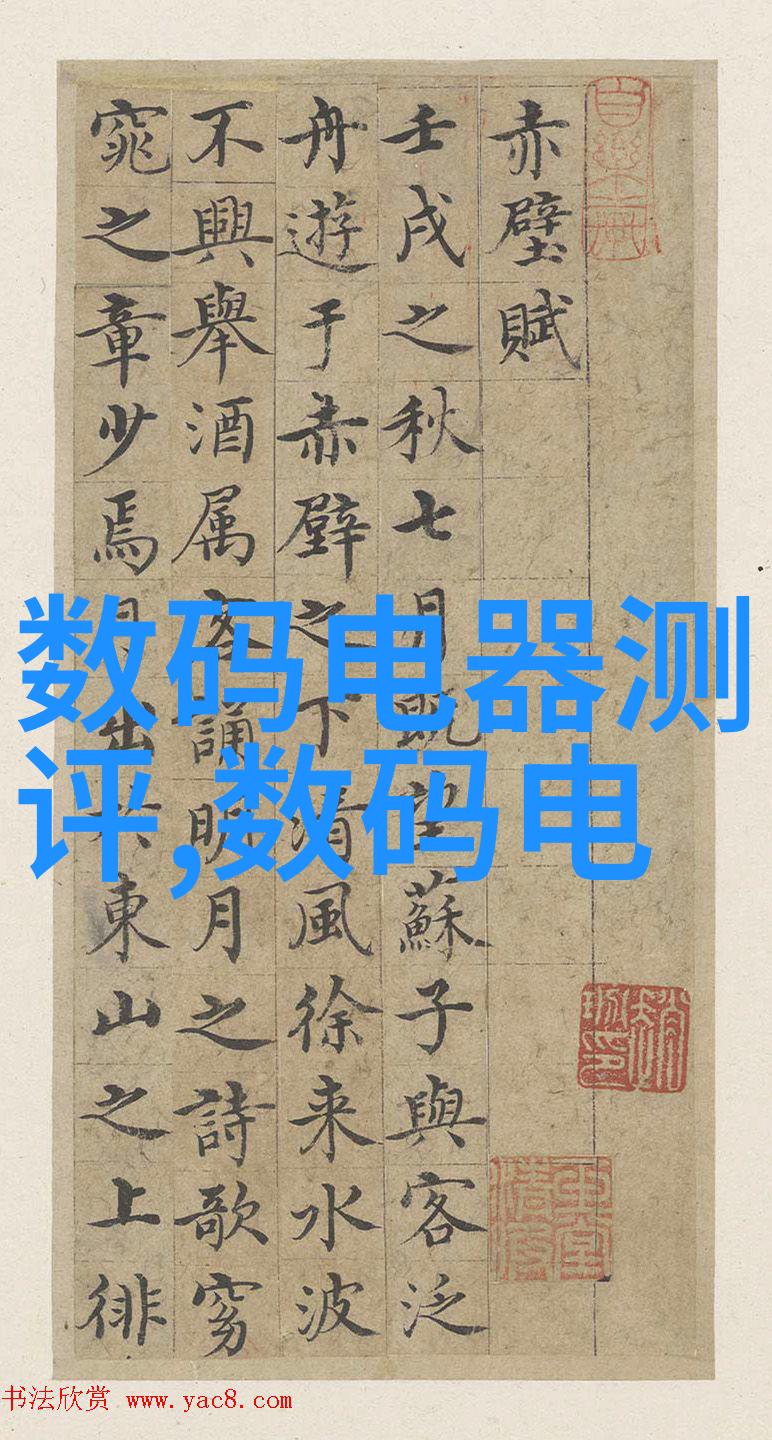 赤壁賦
壬戌之秋七月既望蘇子與客泛
舟遊于赤壁之下清風徐来水波
不興舉酒属客誦明月之詩歌窈
窕之章少焉月出於東山之上徘
数码电器测
评,数码电
书法欣赏 www.yac8.com